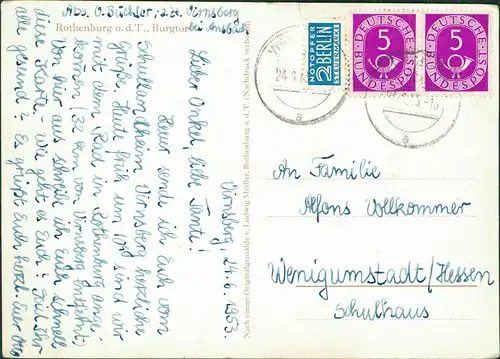 Abs. O. Büchler, z. Zt. Virnsberg
bei Ansbach
Rothenburg o. d. T., Burgtor
Virnsberg, 24.6.1953.
Lieber Onkel, liebe Tante!
Heuer sende ich Euch vom
Schullandheim Virnsberg herzliche
Grüße. Heute früh um sind wir
mit dem Rad in Rothenburg ange-
kommen (32 km von Virnsberg entfernt).
Von hier aus schreibe ich Euch schnell
diese Karte. Wie geht es Euch? Seid Ihr
alle gesund? Es grüßt Euch herzl. Euer Otto
Nach einem Originalgemälde v. Ludwig Mößler, Rothenburg o. d. T. (Nachdruck verboten)
NOTOPFER
2 BERLIN
STEUERMARKE
DEUTSCHE
BUNDESPOST
5
DEUTSCHE
BUNDESPOST
5
24.6.
a
a
An Familie
Alfons Vollkommer
Wenigumstadt/Hessen
Schulhaus